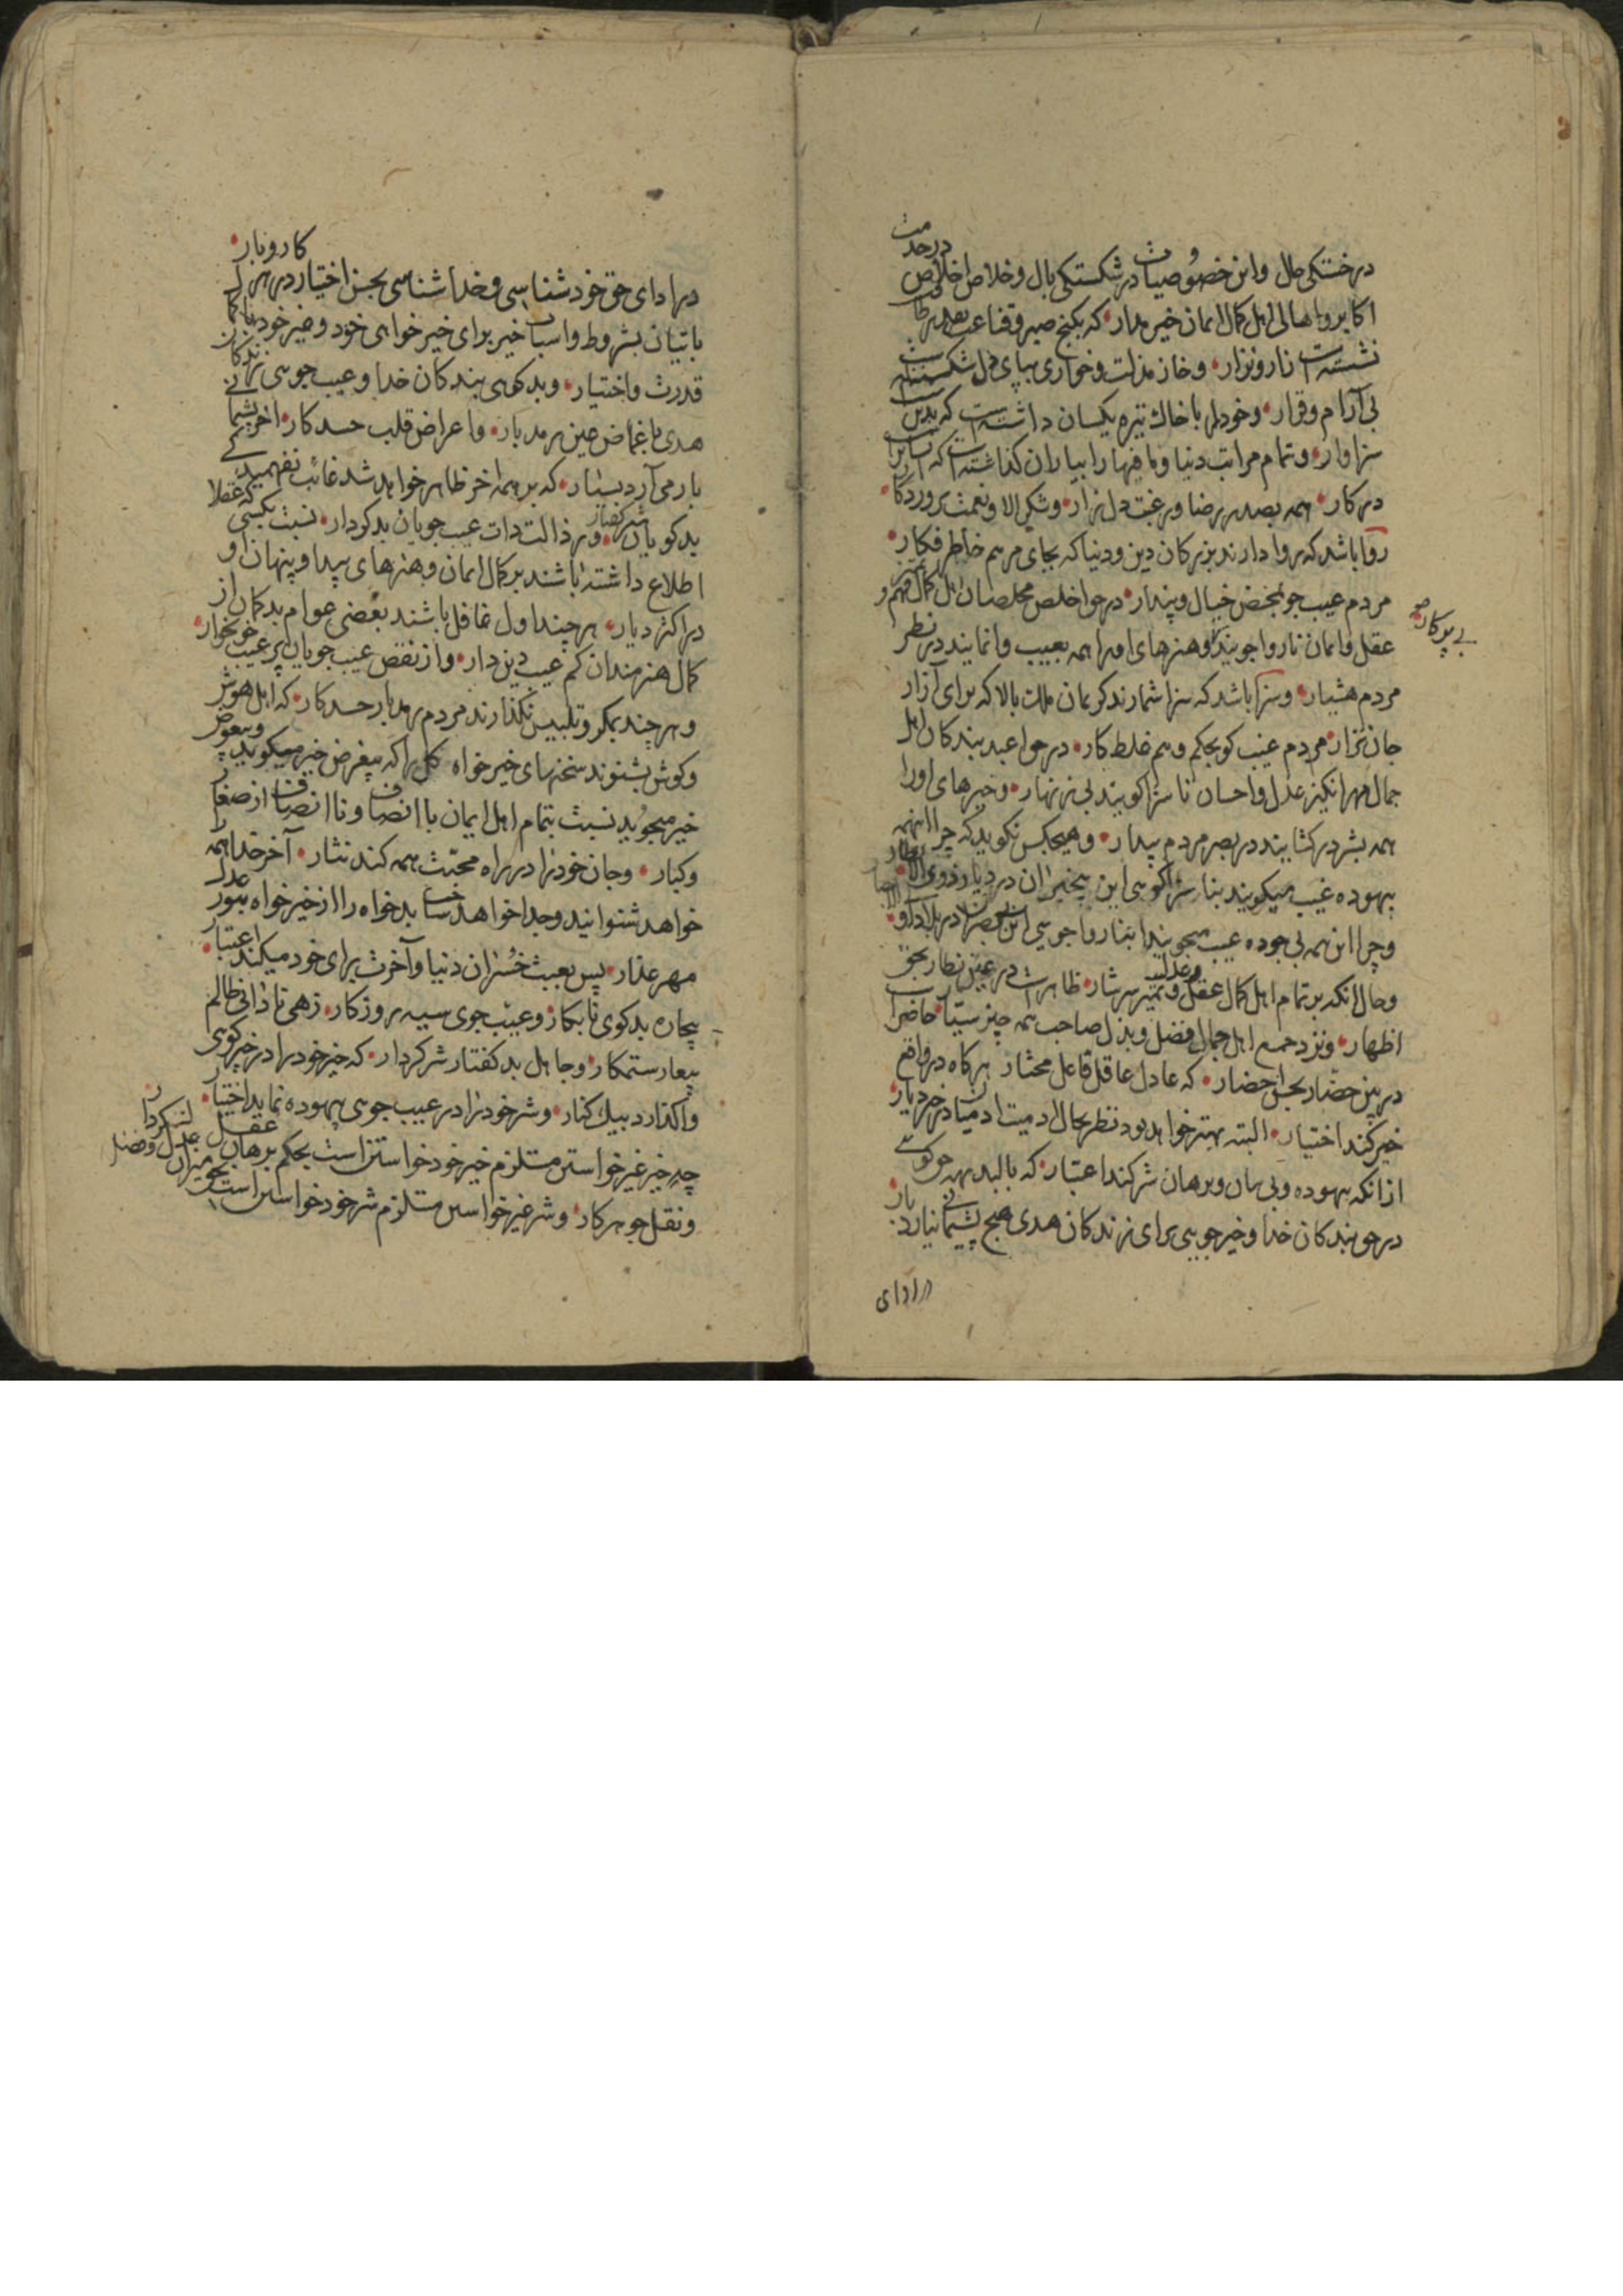 درخستکی حال واین خصوصیات درشکستکی بال وخلاص اخلاص درخدمت
اکابر واهالی اهل کمال ایمان خیرمدار که بکنج صبر وقناعت بصد
نشسته است زار ونزار وخار مذلت وخواری بپای دل شکسته است
بی آرام وقرار وخودرا باخاک تیره یکسان داشته است که بدین
سزاوار وتمام مراتب دنیا ومافیها را بیاران کذاشته است که
درکار همه بصدر رضا ورغبت دل زار وشکر الا ونعمت پروردکار
روا باشد که روا دارند بزرکان دین ودنیا که بجای مرهم خاطر فکار
مردم عیب جو بمحض خیال وپندار درحق اخلص مخلصان اهل کمال فهم و
عقل وایمان ناروا جویند وهنرهای اورا همه بعیب وانمایند درنظر
بی پرکار
مردم هشیار وسزا باشد که سزا شمارند کریمان ملت بالا که برای آزار
جان نزار مردم عیب کو بحکم وهم غلط کار درحق اعبد بندکان اهل
جمال مهرانکیز عدل واحسان ناسزا کویند بی زنهار وخیرهای اورا
همه بشر درکشایند دربصر مردم بیدار وهیچکس نکوید که چرا اینهمه
بیهوده غیب میکویند بناسزاکویی این بیخبران دردیار
وچرا این همه بی جوده عیب میجویند بناروا جویی این
وحال انکه برتمام اهل کمال عقل وتمیز سرشار ظاهراست درعین
اظهار ونزد جمیع اهل جمال فضل وبذل صاحب همه چیز ستار حاضر
دربین حضار بحق احضار که عادل عاقل فاعل مختار هرکاه درواقع
خیرکند اختیار البته بهتر خواهد بود نظر بحال ادمیت
ازانکه بیهوده وبی بیان وبرهان شرکند اعتبار که بالبدیهه حق کویی
درحق بندکان خدا وخیرجویی برای زندکان هدی هیچ پشیمانی نیارد بار
درادای
درادای حق خودشناسی وخداشناسی بحسن اختیار درهر کاروبار
باتیان بشروط واسباب خیر برای خیرخواهی خود وغیرخود
قدرت واختیار وبدکویی بندکان خدا وعیب جویی زندکان
هدی باغماض عین مدبار واعراض قلب حسدکار اخر پشیمانی
بارمی آرد بسیار که برهمه اخر ظاهر خواهد شد غائب نفهمیدکی
بدکویان شرکفتار ورذالت ذات عیب جویان بدکردار نسبت بکسی که عقلا
اطلاع داشته باشند برکمال ایمان وهنرهای پیدا وپنهان او
دراکثر دیار هرچند اول غافل باشند بعضی عوام بدکمان از
کمال هنرمندان کم عیب دین دار واز نقص عیب جویان پرعیب خونخوار
وهرچند بمکر وتلبیس نکذارند مردم حسدکار که اهل هوش
وکوش بشنوند سخنهای خیرخواه کل را که بیغرض خیر میکوید وبیعوض
خیر میجوید نسبت بتمام اهل ایمان باانصاف وناانصاف از صغار
وکبار وجان خودرا درراه محبت همه کند نثار آخر خدا همه را
خواهد شنوانید وجدا خواهد ساخت بدخواه را از خیرخواه بنور عدل
مهرعذار پس بعبث خسران دنیا وآخرت برای خود میکند اعتبار
بیچاره بدکوی نابکار وعیب جوی سیه روزکار زهی نادانی ظالم
بیعار ستمکار وجاهل بدکفتار شرکردار که خیر خودرا درخیرکویی
واکذارد بیک کنار وشر خودرا درعیب جویی بیهوده نماید اختیار
چه خیر غیر خواستن مستلزم خیر خود خواستن است بحکم برهان عقل
ونقل جوهرکار وشر غیر خواستن مستلزم شر خود خواستن است بحق میزان عدل وفضل